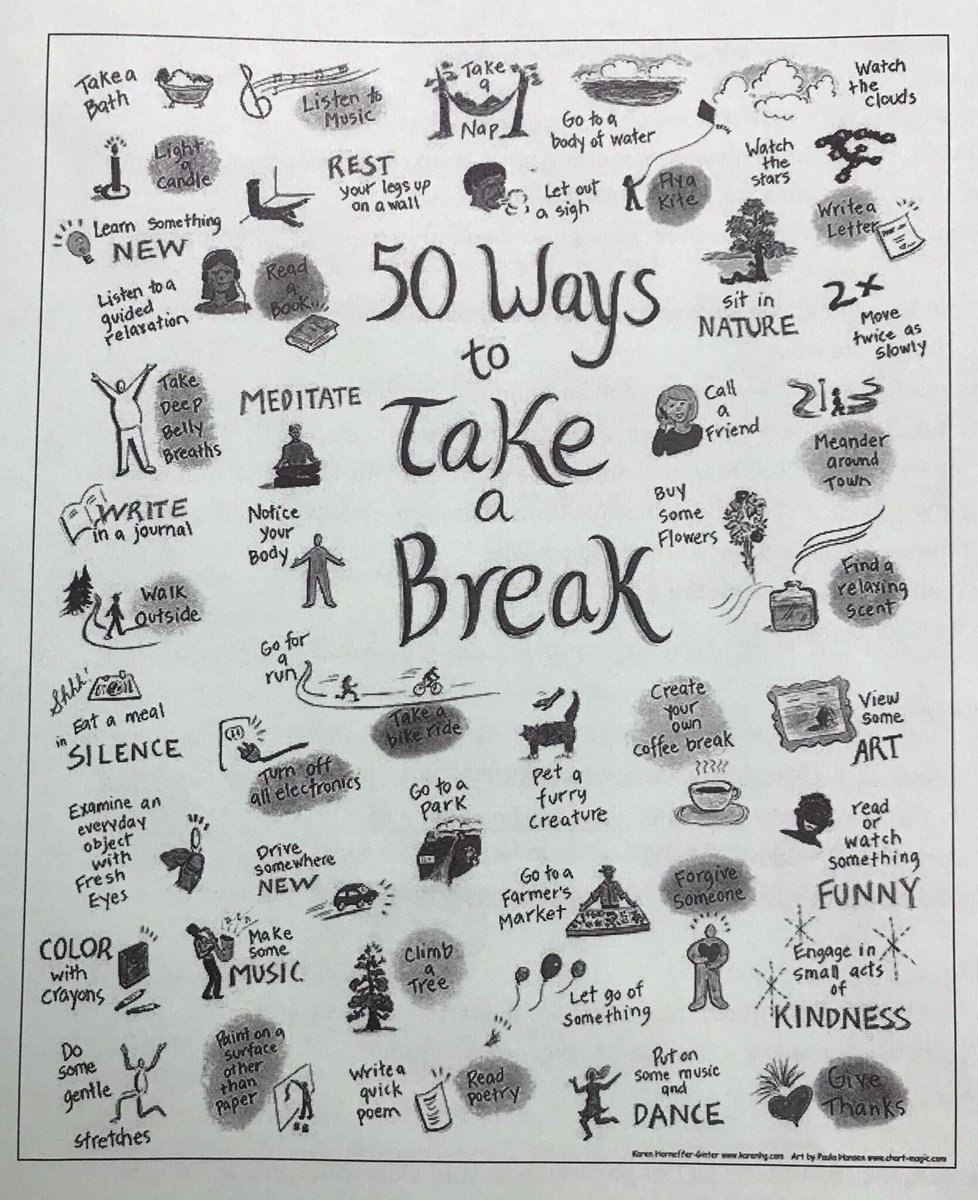 Take a
Bath
Listen to
Music
Take
a
Nap
Go to a
body of water
Watch
the
clouds
Light
a
candle
REST
your legs up
on a wall
Let out
a sigh
Fly a
Kite
Watch
the
stars
Write a
Letter
Learn something
NEW
Listen to a
guided
relaxation
Read
a
Book...
50 Ways
to
Take
a
Break
sit in
NATURE
2x
Move
twice as
slowly
Take
Deep
Belly
Breaths
MEDITATE
Call
a
Friend
Meander
around
Town
WRITE
in a journal
Notice
your
Body
Buy
some
Flowers
Find a
relaxing
scent
Walk
outside
Go for
a
run
Take a
bike ride
Shhh!
Eat a meal
in
SILENCE
Turn off
all electronics
Pet a
furry
creature
Create
your
own
coffee break
View
some
ART
Examine an
everyday
object
with
Fresh
Eyes
Drive
somewhere
NEW
Go to a
park
Go to a
Farmer's
Market
Forgive
Someone
read
or
watch
something
FUNNY
COLOR
with
Crayons
Make
some
MUSIC
Climb
a
Tree
Let go of
something
Engage in
small acts
of
KINDNESS
Do
some
gentle
stretches
Paint on a
surface
other
than
paper
Write a
quick
poem
Read
poetry
Put on
some music
and
DANCE
Give
Thanks
Karen Horneffer-Ginter www.karenhg.com Art by Paula Hansen www.chart-magic.com